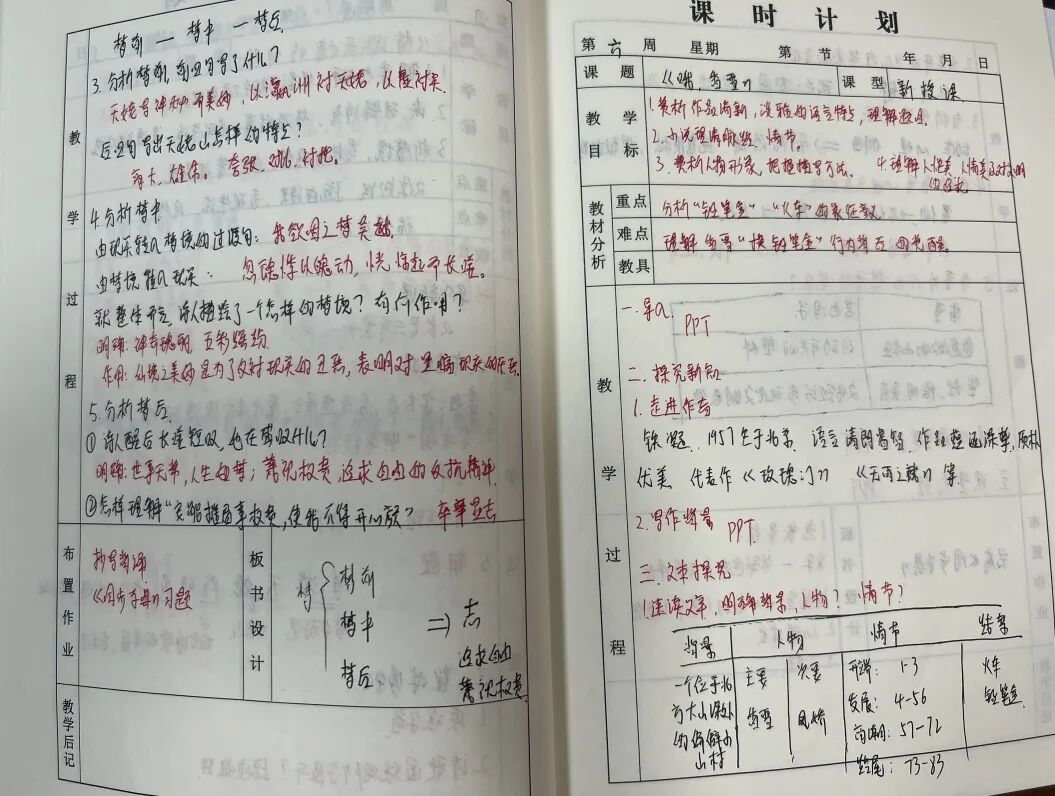 梦前 — 梦中 — 梦后
3. 分析梦前, 前四句写了什么?
天姥有神秘而美妙, 以瀛洲对天姥, 以虚衬实
后四句写出天姥山怎样的特点?
高大、雄伟。 夸张、对比、衬托。
4. 分析梦中
由现实转入梦境的过渡句: 我欲因之梦吴越。
由梦境转入现实: 忽魂悸以魄动, 恍惊起而长嗟。
就整体而言, 诗人描绘了一个怎样的梦境? 有何作用?
明确: 神奇瑰丽, 五彩缤纷
作用: 仙境之美妙是为了反衬现实的丑恶, 表明对黑暗现实的
5. 分析梦后
① 诗人醒后长嗟短叹, 他在感叹什么?
明确: 世事无常, 人生如梦; 蔑视权贵, 追求自由的反抗精神.
② 怎样理解“安能摧眉事权贵, 使我不得开心颜? 卒章显志
教学过程
布置作业
抄写
《同步手册》习题
板书设计
梦前
梦中 ⇒ 志
梦后
追求自由
蔑视权贵
教学后记
课时计划
第 六 周 星期 第 节 年 月 日
课题 《哦, 香雪》 课型 新授课
教学目标
1. 赏析作品清新, 淡雅的语言特点, 理解
2. 小说理清脉络, 情节。
3. 赏析人物形象, 把握描写方法。 4. 理解人性美 人情美及对文明的
教材分析
重点 分析“铅笔盒” “火车”的象征意义
难点 理解香雪“换铅笔盒”行为背后的
教具
教学过程
一. 导入 PPT
二. 探究新知
1. 走进作者
铁凝. 1957生于北京. 语言清朗 作品蕴涵深挚, 质朴
优美 代表作《玫瑰门》《无雨之城》等
2. 写作背景 PPT.
三. 文本探究
1. 速读文章, 明确背景, 人物? 情节?
背景 人物 情节 结果
一个位于北方大山深处的偏僻小山村
主要 次要
香雪 凤娇
开端: 1-3
发展: 4-56
高潮: 57-72
结尾: 73-83
火车
铅笔盒